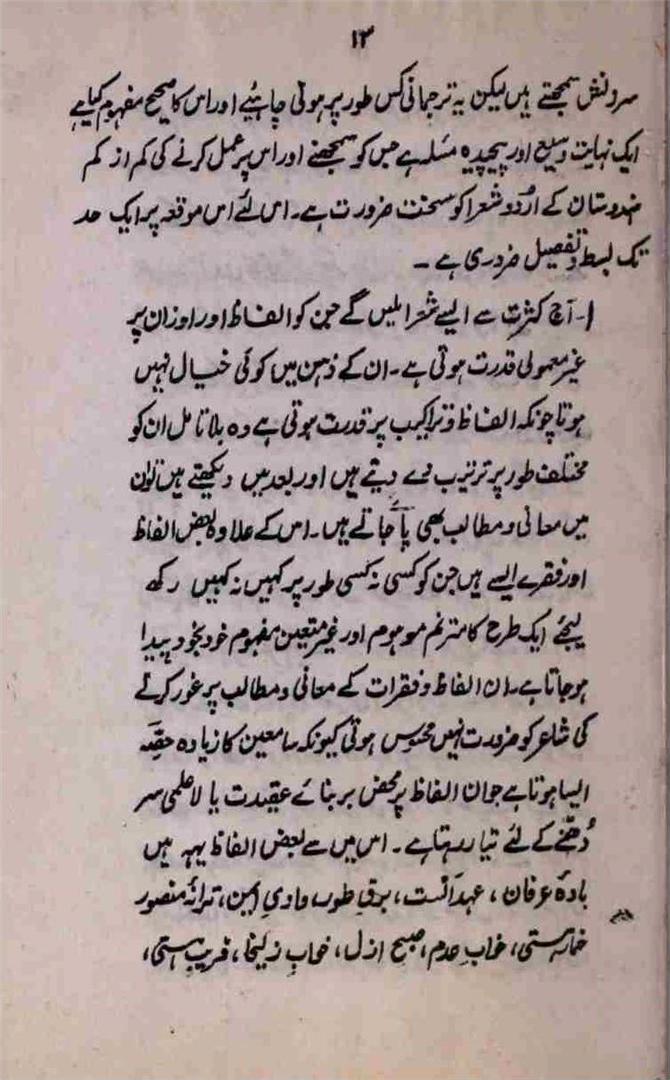 ۱۳
سرزنش سمجھتے ہیں لیکن یہ ترجمانی کس طور پر ہوتی چاہیئے اور اس کا صحیح مفہوم کیا ہے
ایک نہایت وسیع اور پیچیدہ مسئلہ ہے جس کو سمجھنے اور اس پر عمل کرنے کی کم از کم
ہندوستان کے اُردو شعرا کو سخت ضرورت ہے۔ اس لئے اس موقعہ پر ایک حد
تک بسط و تفصیل ضروری ہے۔
۱۔ آج کثرت سے ایسے شعرا ملیں گے جن کو الفاظ اور اوزان پر
غیر معمولی قدرت ہوتی ہے۔ ان کے ذہن میں کوئی خیال نہیں
ہوتا چونکہ الفاظ و تراکیب پر قدرت ہوتی ہے وہ بلا تامل ان کو
مختلف طور پر ترتیب دے دیتے ہیں اور بعد میں دیکھتے ہیں تو ان
میں معانی و مطالب بھی پائے جاتے ہیں۔ اس کے علاوہ بعض الفاظ
اور فقرے ایسے ہیں جن کو کسی نہ کسی طور پر کہیں نہ کہیں رکھ
لیجئے ایک طرح کا مترنم موہوم اور غیر متعین مفہوم خود بخود پیدا
ہو جاتا ہے۔ ان الفاظ و فقرات کے معانی و مطالب پر غور کرنے
کی شاعر کو ضرورت نہیں محسوس ہوتی کیونکہ سامعین کا زیادہ حصّہ
ایسا ہوتا ہے جو ان الفاظ پر محض بر بنائے عقیدت یا لا علمی سر
دُھننے کے لئے تیار رہتا ہے۔ اس میں سے بعض الفاظ یہہ ہیں
بادۂ عرفان، عہد الست، برق طور، وادیِ ایمن، ترانۂ منصور
خمار ہستی، خواب عدم، صبح ازل، خواب زلیخا، فریب ہستی،